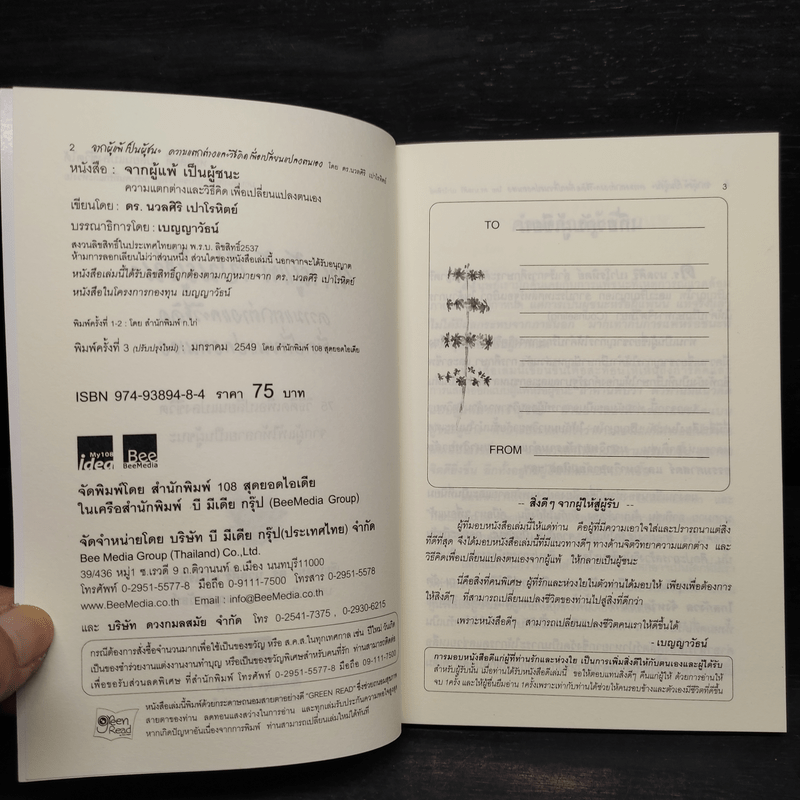 2 จากผู้แพ้ เป็นผู้ชนะ ความแตกต่างและวิธีคิด เพื่อเปลี่ยนแปลงตนเอง โดย ดร.นวลศิริ เปาโรหิตย์
หนังสือ : จากผู้แพ้ เป็นผู้ชนะ
ความแตกต่างและวิธีคิด เพื่อเปลี่ยนแปลงตนเอง
เขียนโดย : ดร. นวลศิริ เปาโรหิตย์
บรรณาธิการโดย : เบญญาวัธน์
สงวนลิขสิทธิ์ในประเทศไทยตาม พ.ร.บ. ลิขสิทธิ์2537
ห้ามการลอกเลียนไม่ว่าส่วนหนึ่ง ส่วนใดของหนังสือเล่มนี้ นอกจากจะได้รับอนุญาต
หนังสือเล่มนี้ได้รับลิขสิทธิ์ถูกต้องตามกฎหมายจาก ดร. นวลศิริ เปาโรหิตย์
หนังสือในโครงการกองทุน เบญญาวัธน์
พิมพ์ครั้งที่ 1-2 : โดย สำนักพิมพ์ ก.ไก่
พิมพ์ครั้งที่ 3 (ปรับปรุงใหม่) : มกราคม 2549 โดย สำนักพิมพ์ 108 สุดยอดไอเดีย
ISBN 974-93894-8-4 ราคา 75 บาท
My108 idea Bee BeeMedia
จัดพิมพ์โดย สำนักพิมพ์ 108 สุดยอดไอเดีย
ในเครือสำนักพิมพ์ บี มีเดีย กรุ๊ป (BeeMedia Group)
จัดจำหน่ายโดย บริษัท บี มีเดีย กรุ๊ป(ประเทศไทย) จำกัด
Bee Media Group (Thailand) Co.,Ltd.
39/436 หมู่1 ซ.เรวดี 9 ถ.ติวานนท์ อ.เมือง นนทบุรี11000
โทรศัพท์ 0-2951-5577-8 มือถือ 0-9111-7500 โทรสาร 0-2951-5578
www.BeeMedia.co.th Email : info@BeeMedia.co.th
และ บริษัท ดวงกมลสมัย จำกัด โทร 0-2541-7375 , 0-2930-6215
กรณีต้องการสั่งซื้อจำนวนมากเพื่อใช้เป็นของขวัญ หรือ ส.ค.ส.ในทุกเทศกาล เช่น ปีใหม่ วันเกิด
เป็นของชำร่วยงานแต่งงานงานทำบุญ หรือเป็นของขวัญพิเศษสำหรับคนที่รัก ท่านสามารถติดต่อ
เพื่อขอรับส่วนลดพิเศษ ที่สำนักพิมพ์ โทรศัพท์ 0-2951-5577-8 มือถือ 09-111-7500
Green Read
หนังสือเล่มนี้พิมพ์ด้วยกระดาษถนอมสายตาอย่างดี "GREEN READ" ซึ่งช่วยถนอมสุขภาพ
สายตาของท่าน ลดทอนแสงสว่างในการอ่าน และทุกเล่มรับประกันความพอใจสูงสุด
หากเกิดปัญหาอันเนื่องจากการพิมพ์ ท่านสามารถเปลี่ยนเล่มใหม่ได้ทันที
3
TO
FROM
-- สิ่งดีๆ จากผู้ให้สู่ผู้รับ --
ผู้ที่มอบหนังสือเล่มนี้ให้แด่ท่าน คือผู้ที่มีความเอาใจใส่และปรารถนาแต่สิ่ง
ที่ดีที่สุด จึงได้มอบหนังสือเล่มนี้ที่มีแนวทางดีๆ ทางด้านจิตวิทยาความแตกต่าง และ
วิธีคิดเพื่อเปลี่ยนแปลงตนเองจากผู้แพ้ ให้กลายเป็นผู้ชนะ
นี่คือสิ่งที่คนพิเศษ ผู้ที่รักและห่วงใยในตัวท่านได้มอบให้ เพียงเพื่อต้องการ
ให้สิ่งดีๆ ที่สามารถเปลี่ยนแปลงชีวิตของท่านไปสู่สิ่งที่ดีกว่า
เพราะหนังสือดีๆ สามารถเปลี่ยนแปลงชีวิตคนเราให้ดีขึ้นได้
- เบญญาวัธน์
การมอบหนังสือดีแก่ผู้ที่ท่านรักและห่วงใย เป็นการเพิ่มสิ่งดีให้กับตนเองและผู้ได้รับ
สำหรับผู้รับนั้น เมื่อท่านได้รับหนังสือดีเล่มนี้ ขอให้ตอบแทนสิ่งดีๆ คืนแก่ผู้ให้ ด้วยการอ่านให้
จบ 1ครั้ง และให้ผู้อื่นยืมอ่าน 1ครั้งเพราะเท่ากับท่านได้ช่วยให้คนรอบข้างและตัวเองมีชีวิตที่ดีขึ้น